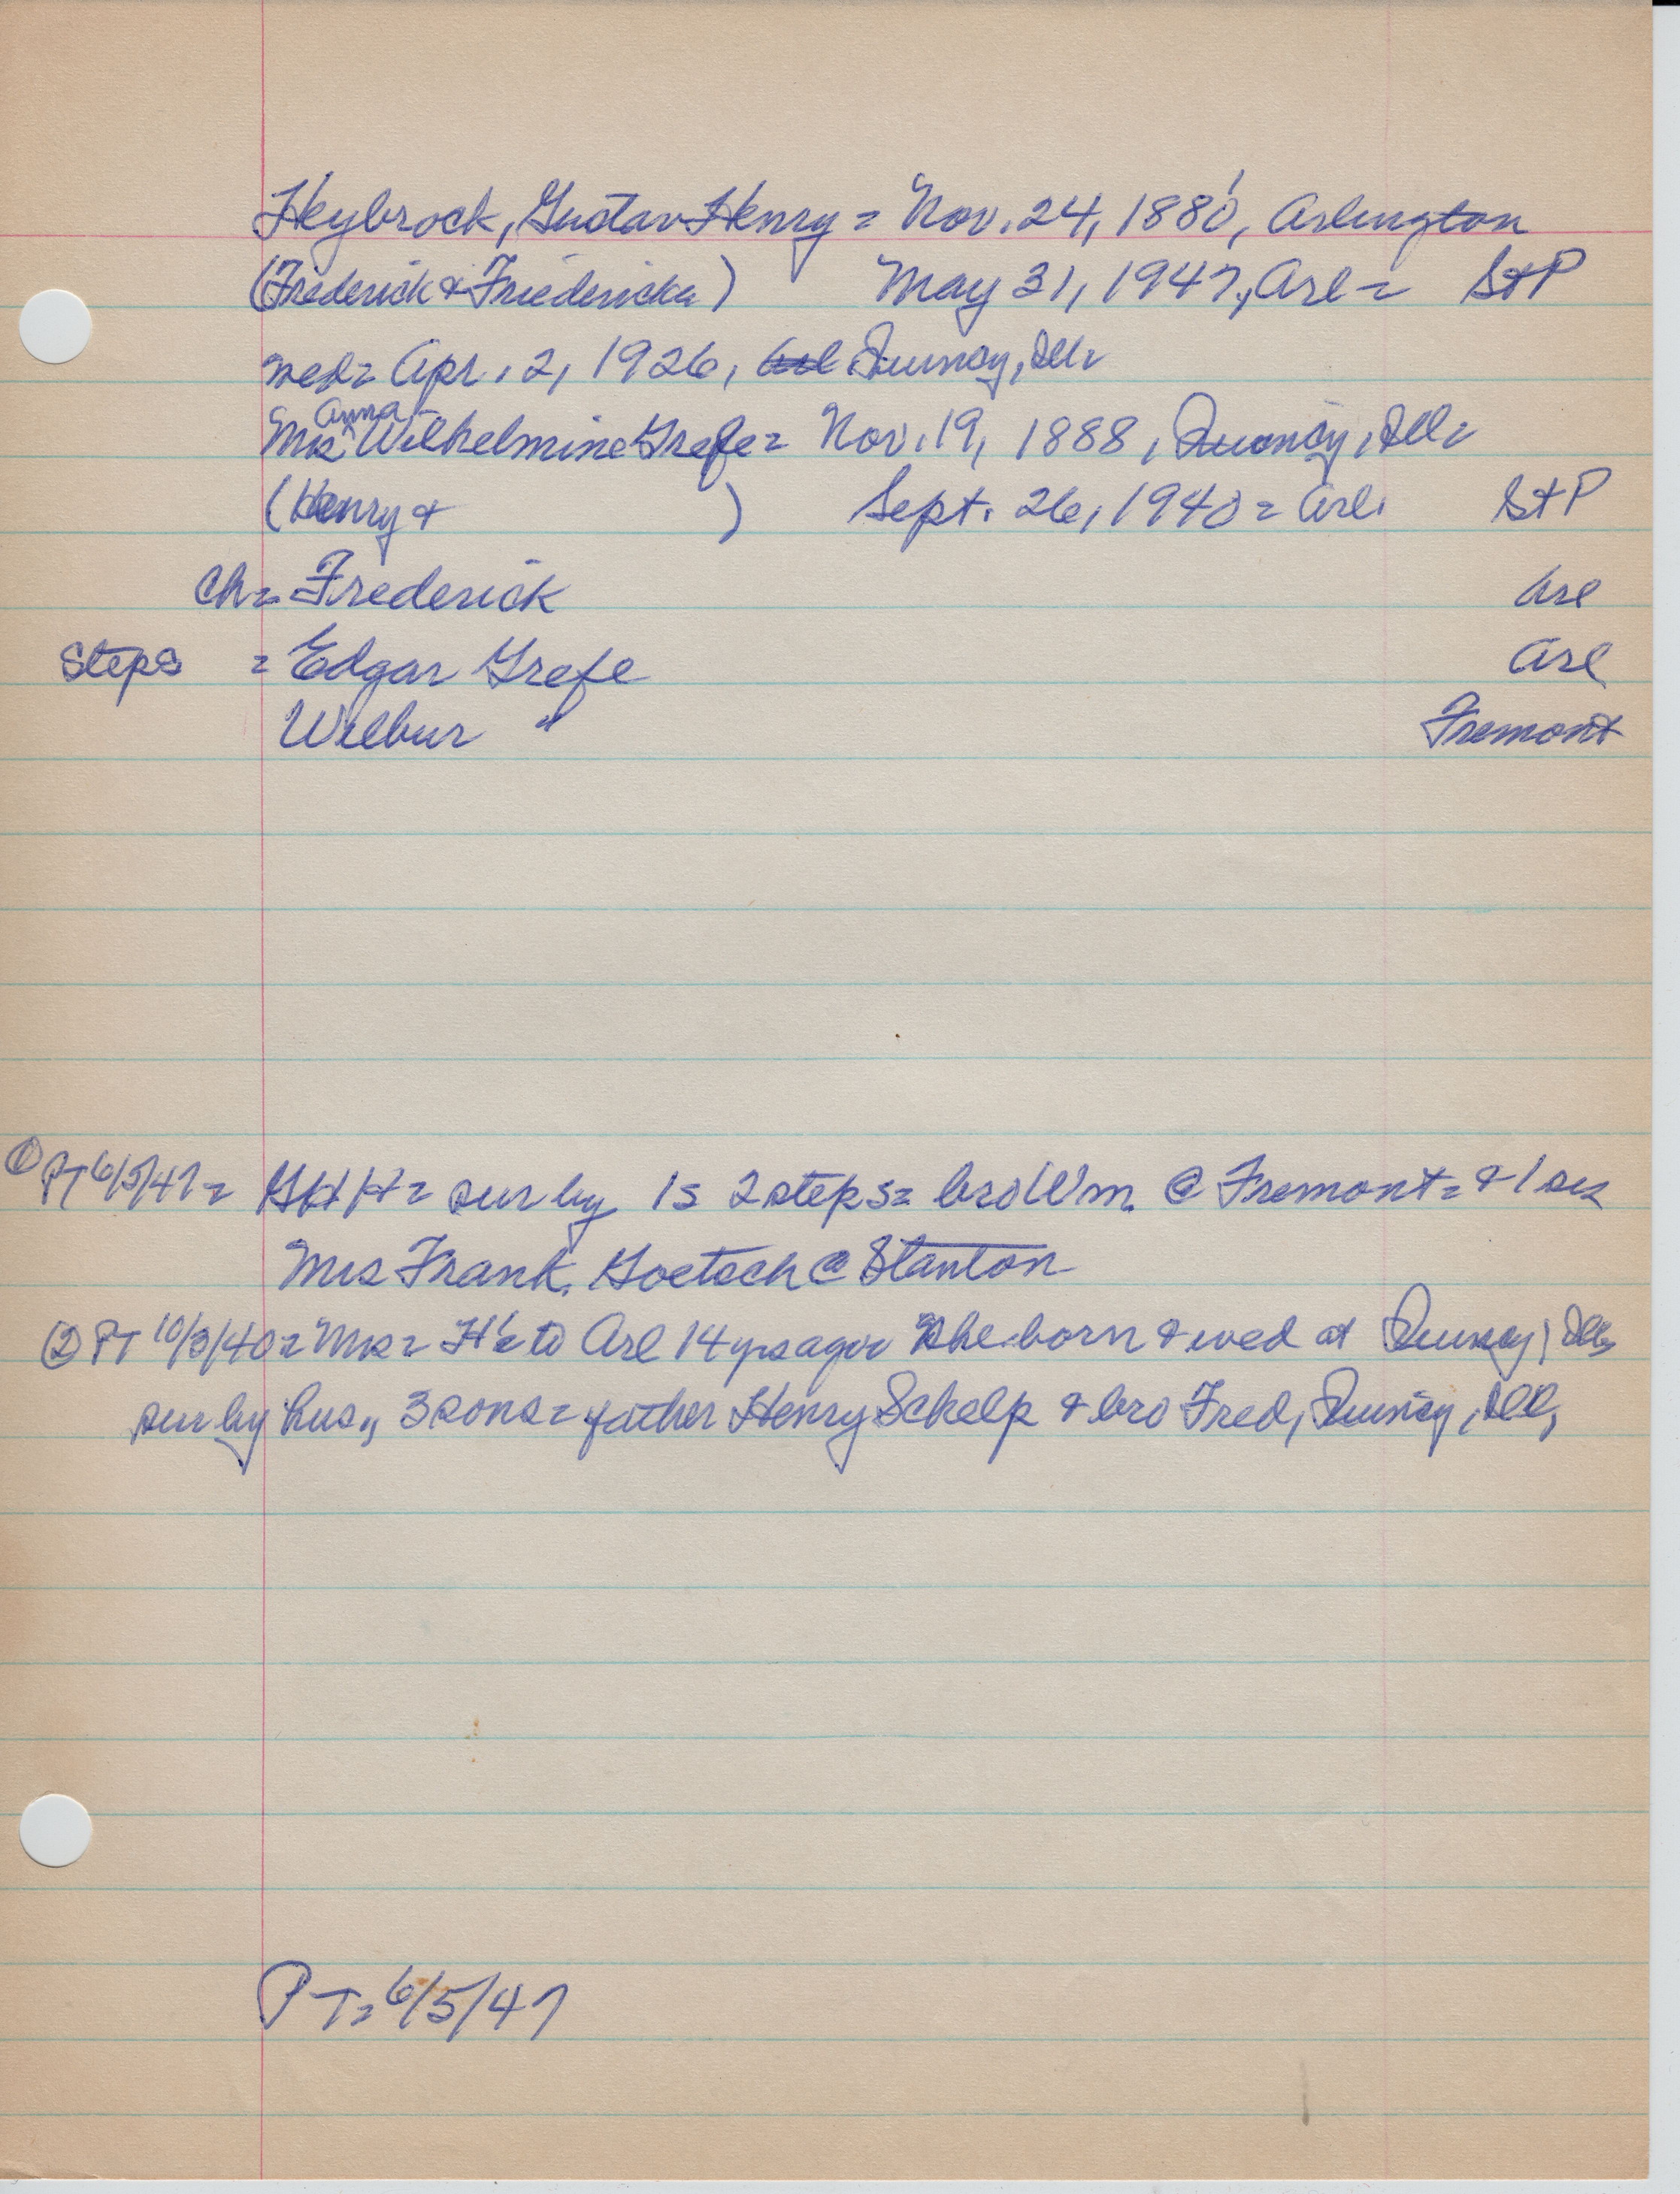 Heybrock, Gustav Henry = Nov. 24, 1880, Arlington
(Frederick & Friedericka) May 31, 1947, Arl = St P
wed = Apr. 2, 1926, Quincy, Ill =
Anna
Mrs Wilhelmine Grefe = Nov. 19, 1888, Quincy, Ill =
(Henry & ) Sept. 26, 1940 = Arl. St P
Ch = Frederick Arl
Steps = Edgar Grefe Arl
Wilbur " Fremont
① PT 6/5/47 = GHH = sur by 1s 2 steps = bro Wm. @ Fremont = & 1 sis
Mrs Frank. Goetsch @ Stanton
② PT 10/3/40 = Mrs = H's to Arl 14 yrs ago = She born & wed at Quincy, Ill
sur by hus,, 3 sons = father Henry Schelp & bro Fred, Quincy, Ill,
PT = 6/5/47